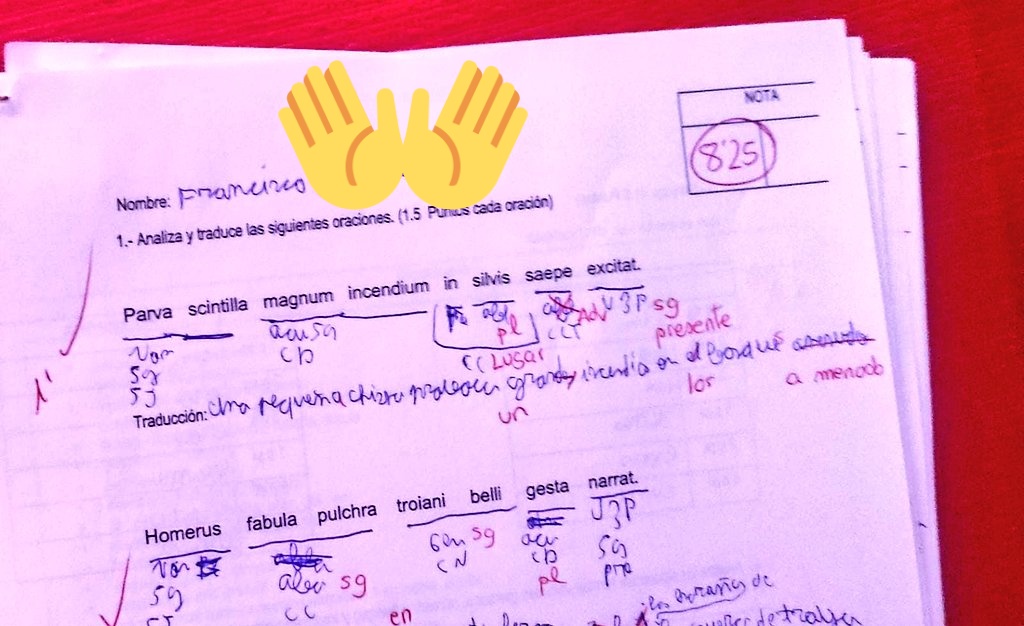 NOTA
8'25
Nombre: Francisco
1.- Analiza y traduce las siguientes oraciones. (1.5 Puntos cada oración)
Parva scintilla magnum incendium in silvis saepe excitat.
Nom acusg abl Adv V3P sg
sg CD pl CCT presente
SJ CC Lugar
1'
Traducción: Una pequeña chispa grande incendio en el bosque
un los a menudo
Homerus fabula pulchra troiani belli gesta narrat.
Nom Gen sg acu V3P
sg abla sg CN CD sg
SJ CC pl pre
en las hazañas de